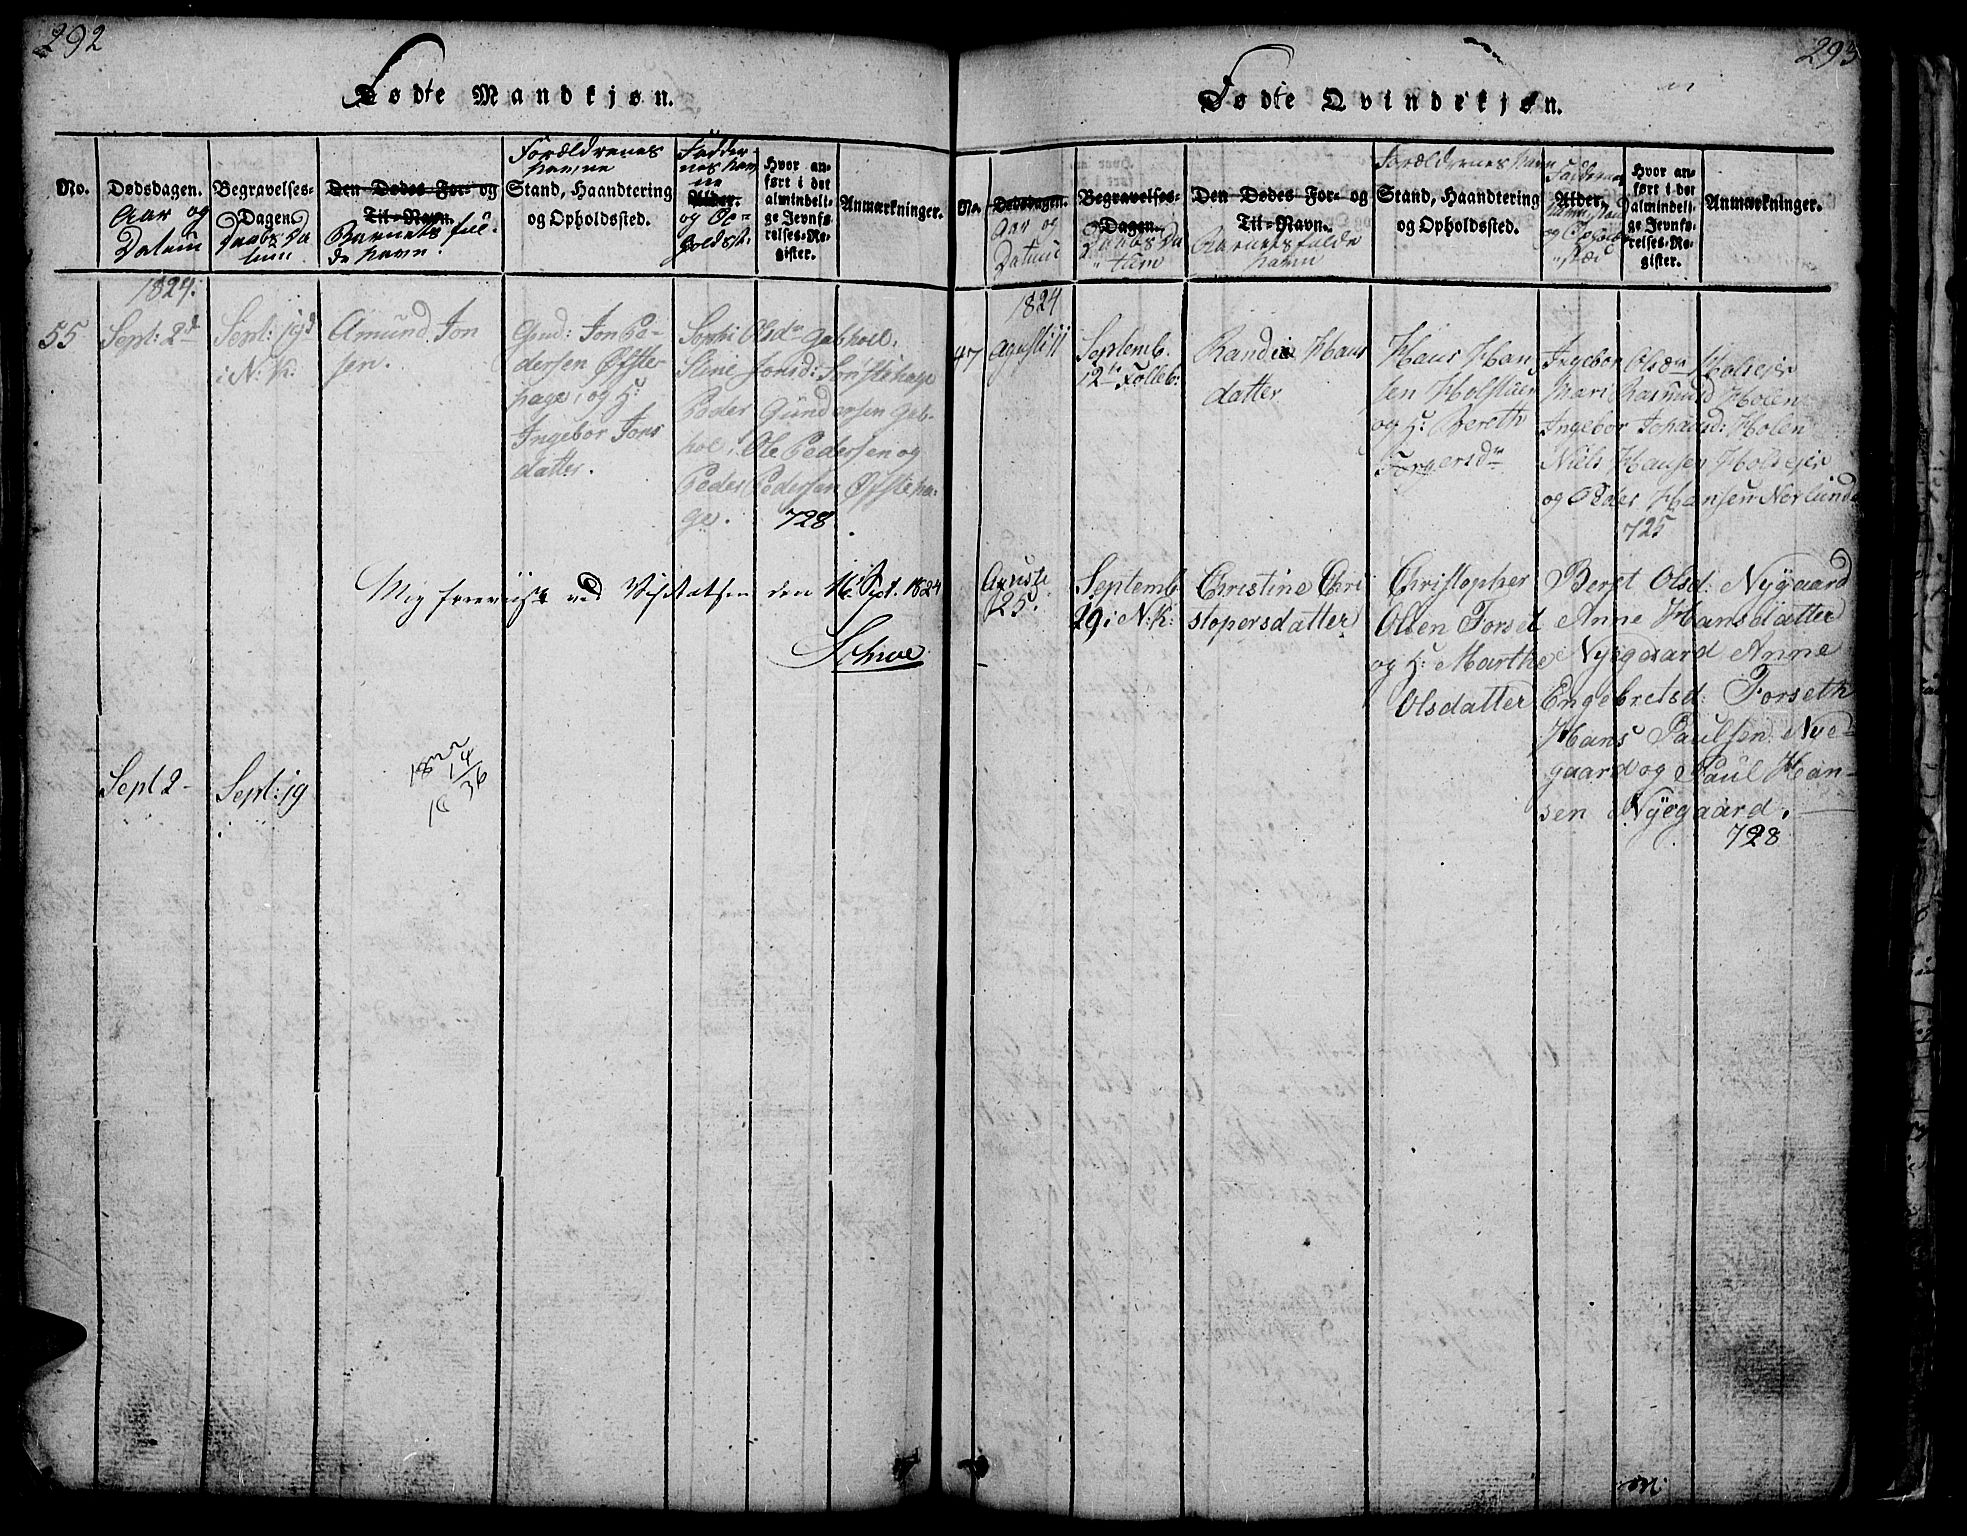 292
Fødte Mandkjøn.
No.
Dødsdagen.
Aar og
Datum
Begravelses-
Dagen
Daabs Da
tum
Den Dødes For- og
Til-Navn.
Barnets ful-
de Navn.
Forældrenes
Navne
Stand, Haandtering
og Opholdssted.
Fadder-
nes Nav
ne
Alder.
og Op-
holdsst:
Hvor an-
ført i det
almindeli-
ge Jevnfø-
relses-Re-
gister.
Anmærkninger.
1824.
55
Sept: 2d
Sept: 19d
i N: K.
Amund Jon
sen.
Gmd: Jon Pe-
dersen Øfste
hage, og H:
Ingebor Jons
datter.
Olsdr
Stine Jonsd:
Peder Gundersen Geb-
hol, Ole Pedersen og
Peder Pedersen Øfsteha-
ge. 728
Mig foreviist ved Visitatsen den 16 Sept. 1824
Sept 2-
Sept: 19
18
14
18 36
293
Fødte Qvindekjøn.
No.
Dødsdagen.
Aar og
Datum
Begravelses-
Dagen.
Daabs Da
tum
Den Dødes For- og
Til-Navn.
Barnets fulde
Navn
Forældrenes Navn
Stand, Haandtering
og Opholdssted.
Alder.
Hvor an-
ført i det
almindeli-
ge Jevnfø-
relses-Re-
gister.
Anmærkninger.
1824
47
Agusti 11
Septemb.
12te Folleb:
Randie Hans
datter
Hans Han
sen Holstuen
og H: Bereth
Torgersdr
Ingebor Olsdr Holseje
Mari Rasmusd Holen
Ingebor Johansd: Holen
Niels Hansen Holseje
og Peder Hansen Norlunde
725
Aguste
25.
Septemb
29 i N: K:
Christine Chri
stopersdatter
Christopher
Olsen Forset
og H: Marthe
Olsdatter
Beret Olsd: Nygaard
Anne Hansdatter
Nyegaard Anne
Engebretsd: Forseth
Hans Paulsen Nye-
gaard og Paul Han-
sen Nyegaard.
728